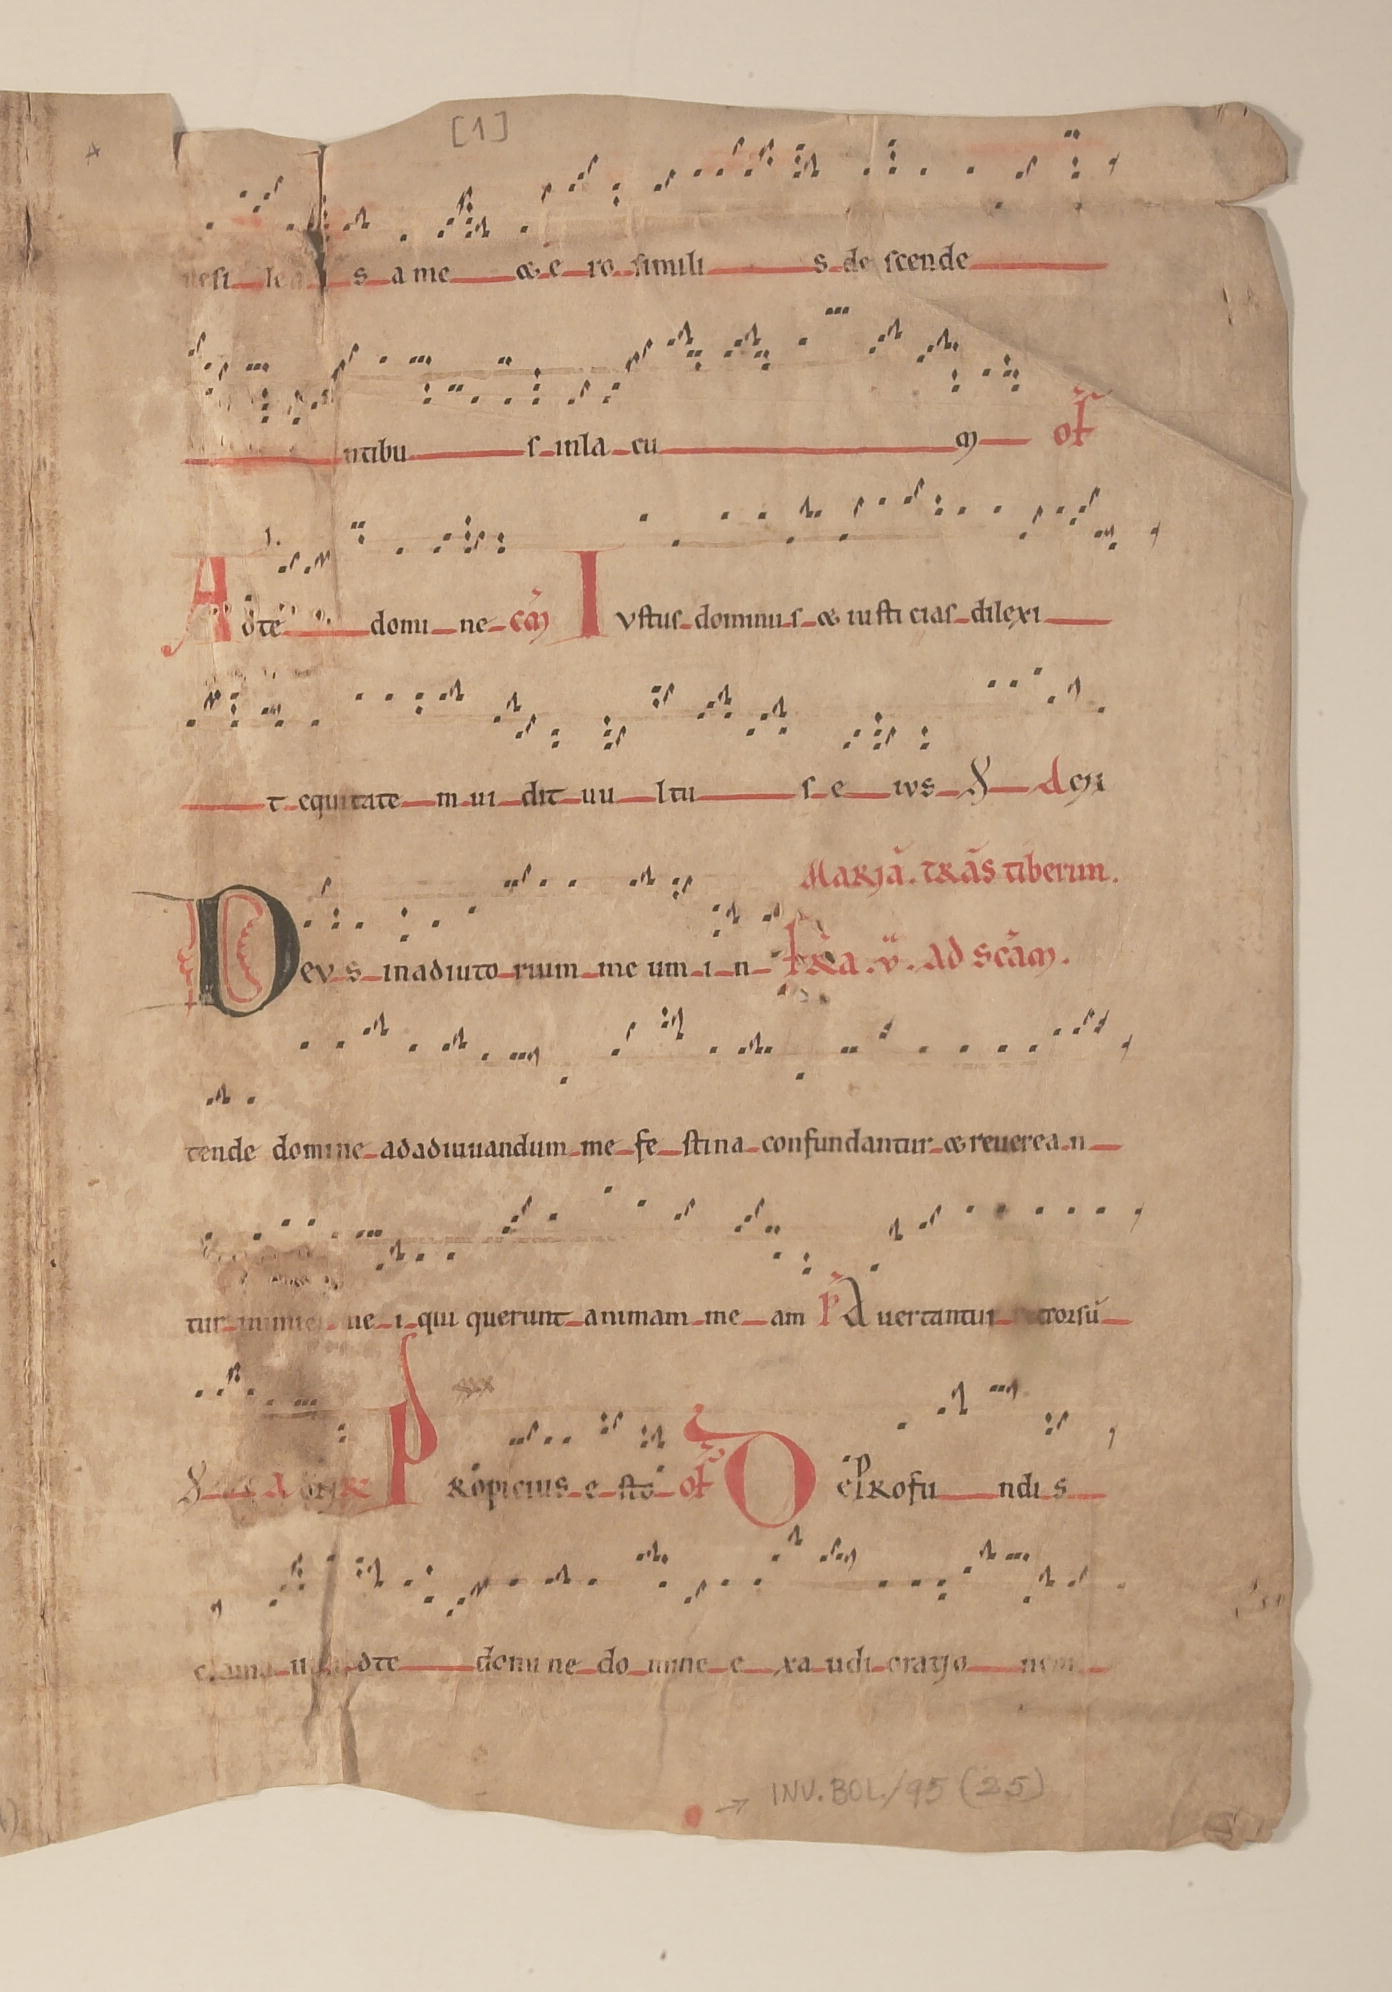 [1]
nesi lea s a me & e ro simili s de scende
ntibu s in la cu m of
A dte domi ne cō I vstus dominus & iusti cias dilexi
t equitate m ui dit uu ltu s e ius V deus
Mariā. trās tiberim.
D evs in adiuto rium me um i n fr̄a .v. ad scām.
tende domine adadiuuandum me fe stina confundantur & reuerea n
tur inimi me i qui querunt animam me am P A uertantur retrorsū
P ropicius e sto of D e profu ndis
clama ui adte domi ne do mine e xa udi oratjo nem
→ INV. BOL./95 (25)